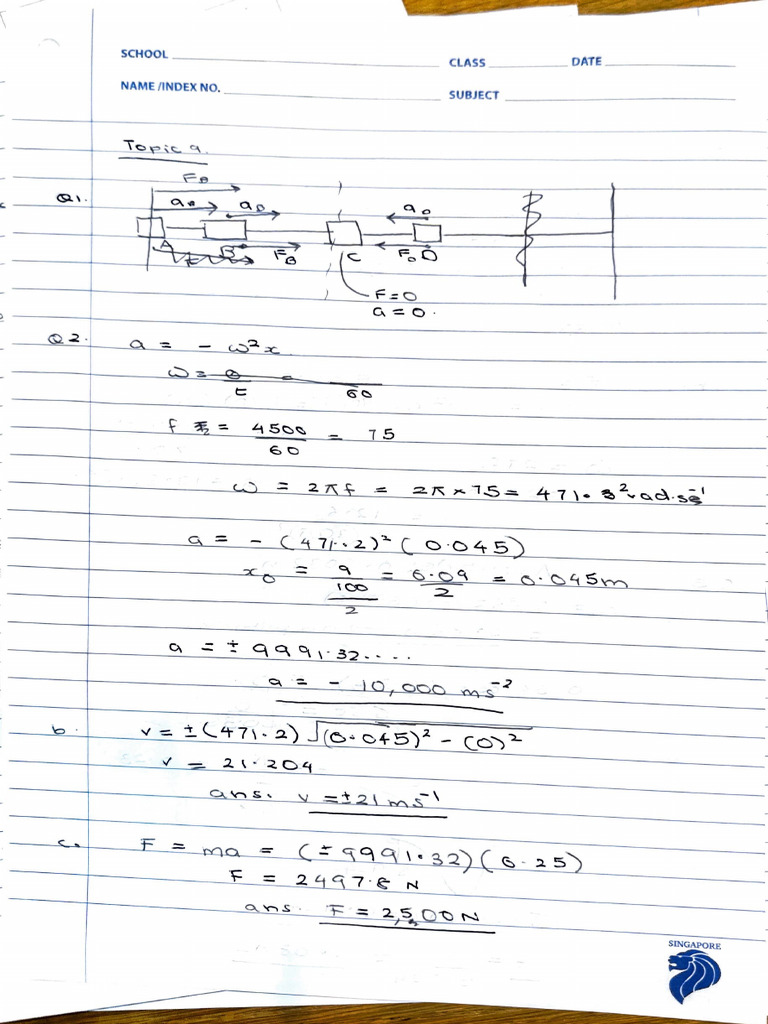 SCHOOL CLASS DATE
NAME /INDEX NO. SUBJECT
Topic 9.
Q1.
F_A
a_A a_B a_D
A B F_B C F_D D
F=0
a=0.
Q2. a = - ω²x
ω = θ/t = /60
f = 4500/60 = 75
ω = 2πf = 2π×75 = 471.2 rad.s⁻¹
a = - (471.2)² (0.045)
x₀ = 9/100/2 = 0.09/2 = 0.045m
a = ± 9991.32....
a = - 10,000 ms⁻²
b. v = ±(471.2) √(0.045)² - (0)²
v = 21.204
ans. v = ±21 ms⁻¹
c. F = ma = (±9991.32)(0.25)
F = 2497.8 N
ans. F = 2,500 N
SINGAPORE